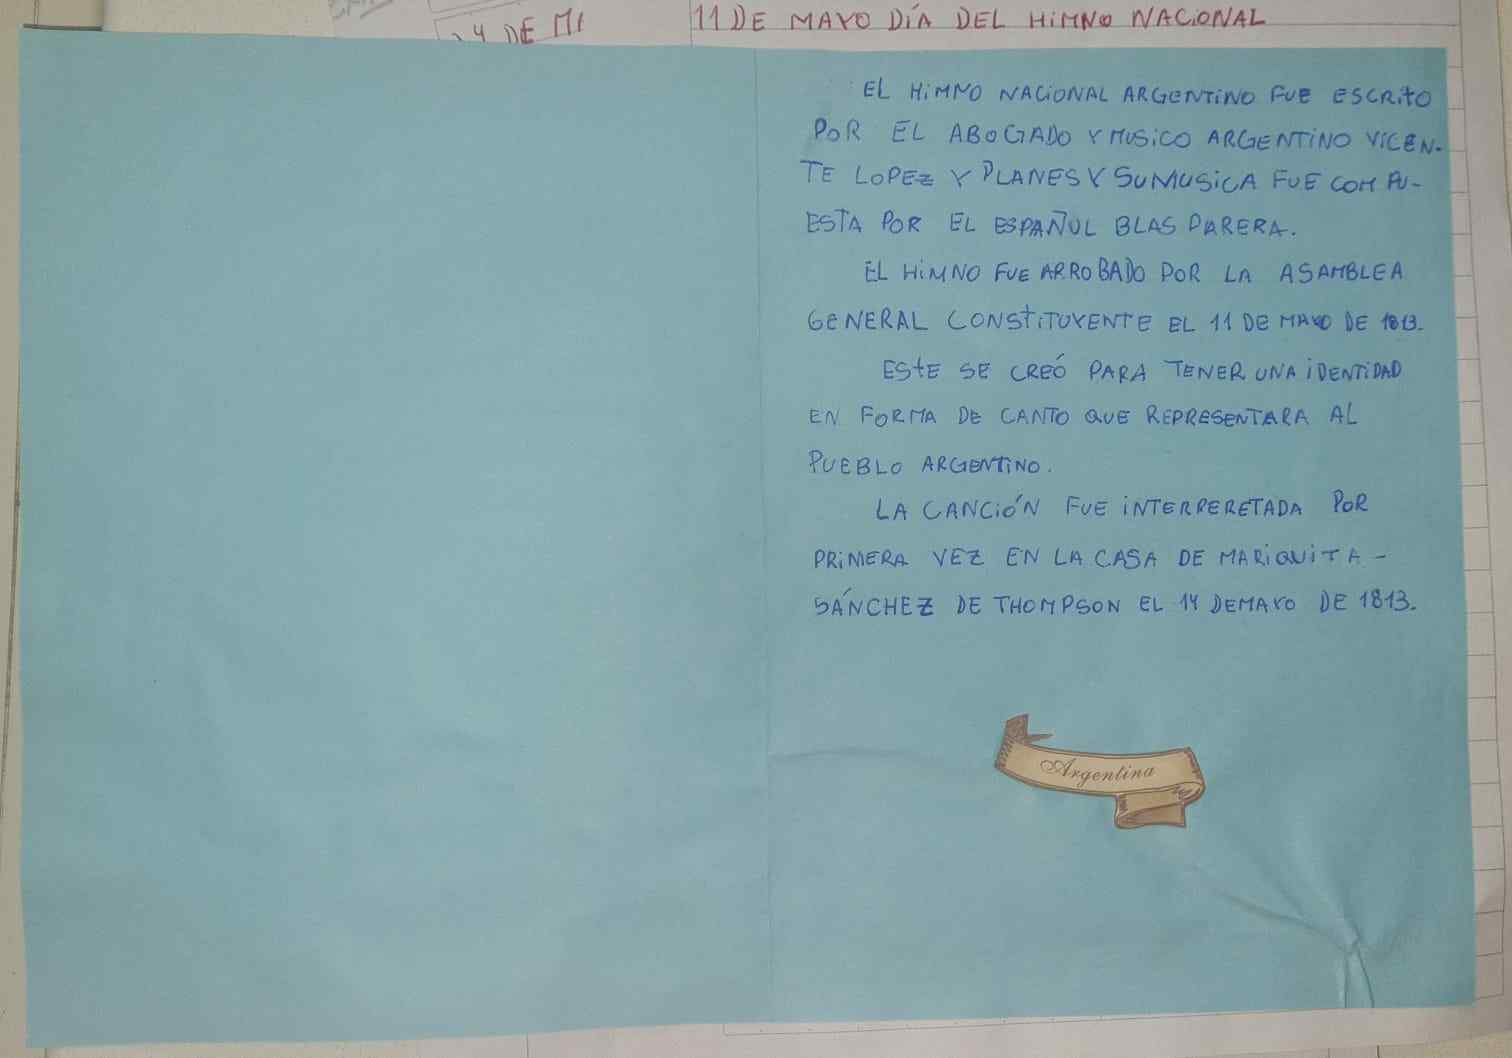 24 DE MI
11 DE MAYO DÍA DEL HIMNO NACIONAL
EL HIMNO NACIONAL ARGENTINO FUE ESCRITO
POR EL ABOGADO Y MUSICO ARGENTINO VICEN-
TE LOPEZ Y PLANES Y SU MUSICA FUE COMPU-
ESTA POR EL ESPAÑOL BLAS PARERA.
EL HIMNO FUE ARROBADO POR LA ASAMBLEA
GENERAL CONSTITUYENTE EL 11 DE MAYO DE 1813.
ESTE SE CREÓ PARA TENER UNA IDENTIDAD
EN FORMA DE CANTO QUE REPRESENTARA AL
PUEBLO ARGENTINO.
LA CANCIÓN FUE INTERPERETADA POR
PRIMERA VEZ EN LA CASA DE MARIQUITA -
SÁNCHEZ DE THOMPSON EL 14 DE MAYO DE 1813.
Argentina